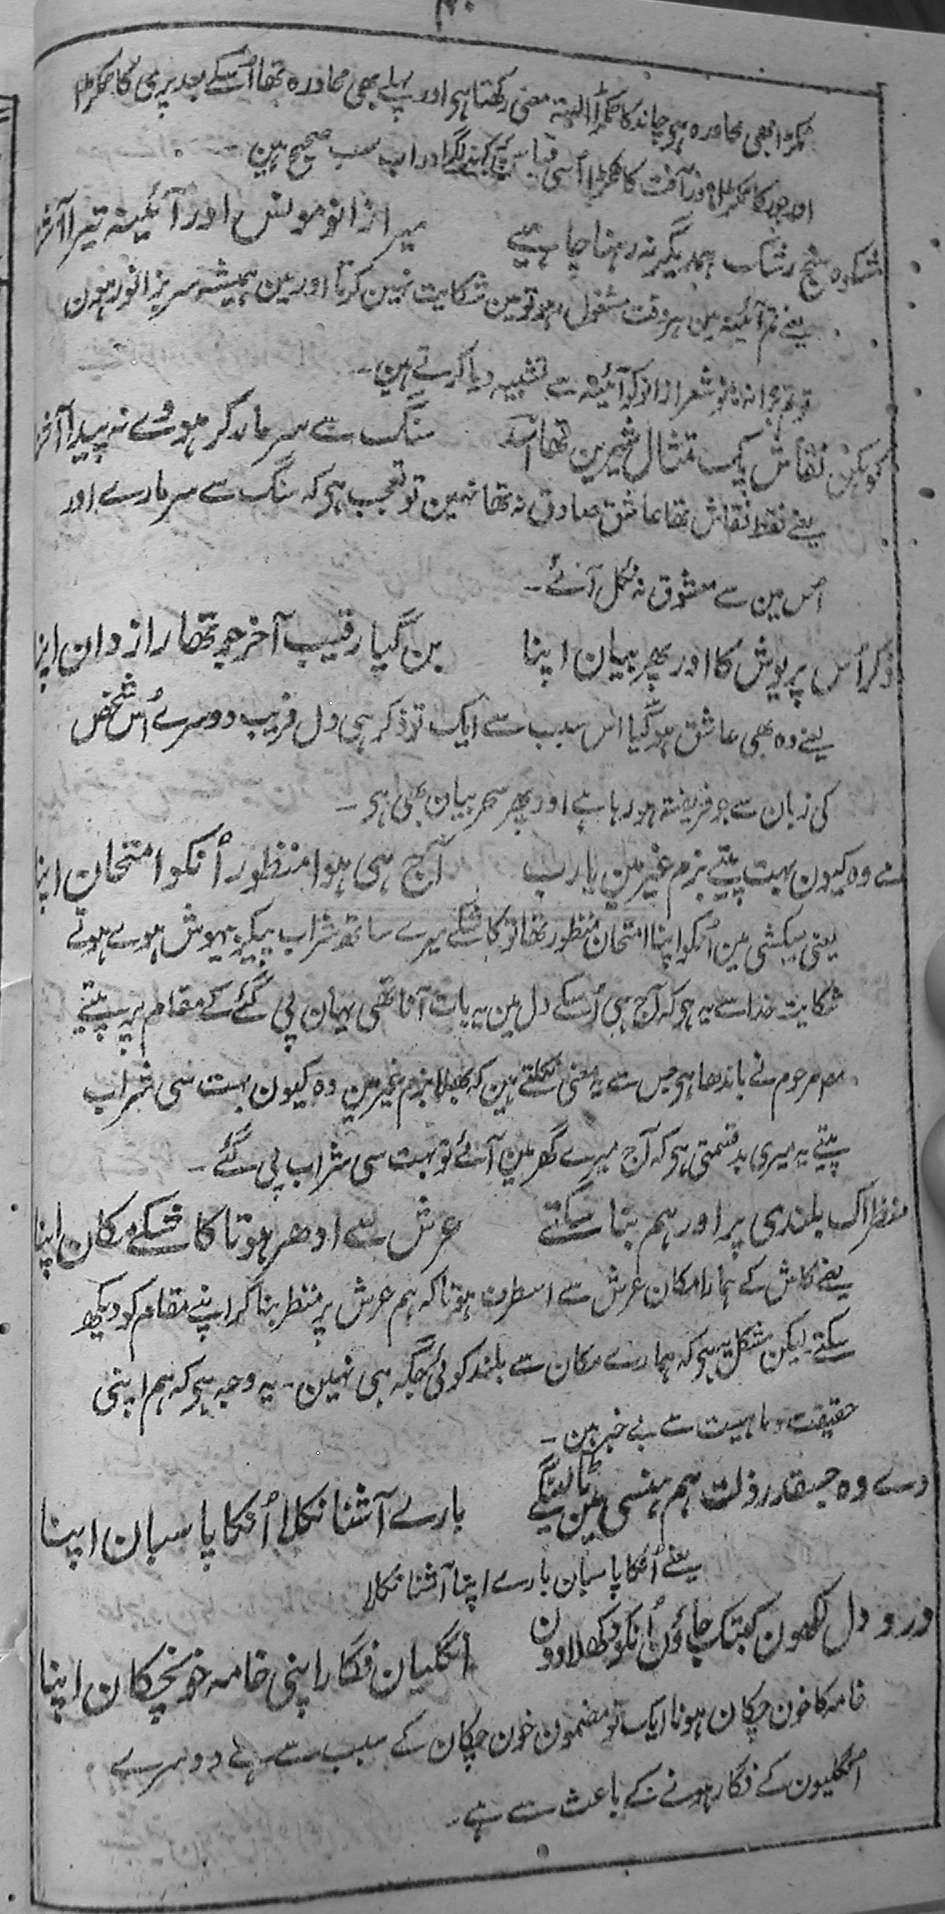 ٹکڑا بھی محاورہ ہو چاند کا ٹکڑا البتہ معنی رکھتا ہو اور پہلے بھی محاورہ تھا اُسکے بعد پری کا ٹکڑا
اور حور کا ٹکڑا اور آفت کا ٹکڑا اُسی قیاس پر کہنے لگے اور اب سب صحیح ہین ۔
شکوہ سنج رشک ہمدیگر نہ رہنا چاہیے میرا زانو مونس اور آئینہ تیرا آشنا
یعنے تم آئینہ مین ہر وقت مشغول ہو تو مین شکایت نہین کرتا اور مین ہمیشہ سر بزانو رہون
تو تم برا نہ مانو شعرا زانو کو آئینہ سے تشبیہ دیا کرتے ہین ۔
کوہکن نقاش یک تمثال شیرین تھا اسد سنگ سے سر مار کر ہووے نہ پیدا آشنا
یعنے فقط نقاش تھا عاشق صادق نہ تھا نہین تو تعجب ہو کہ سنگ سے سر مارے اور
اُس مین سے معشوق نہ نکل آئے ۔
ذکر اُس پریوش کا اور پھر بیان اپنا بن گیا رقیب آخر جو تھا رازدان اپنا
یعنے وہ بھی عاشق ہو گیا اس سبب سے ایک تو ذکر ہی دل فریب دوسرے اُس شخص
کی زبان سے جو فریفتہ ہو رہا ہے اور پھر سحر بیان بھی ہو ۔
مے وہ کیون بہت پیتے بزم غیر مین یارب آج ہی ہوا منظور اُنکو امتحان اپنا
یعنی میکشی مین اُنکو اپنا امتحان منظور تھا تو کاشکے میرے ساتھ شراب پیکر بیہوش ہوے ہوتے
شکایت خدا سے یہ ہو کہ آج ہی اُسکے دل مین یہ بات آنا تھی یہان پی گئے کے مقام پر پیتے
مرحوم نے باندھا ہو جس سے یہ معنی نکلتے ہین کہ بھلا بزم غیر مین وہ کیون بہت سی شراب
پیتے یہ میری بدقسمتی ہو کہ آج میرے گھر مین آئے تو بہت سی شراب پی گئے ۔
منظر اک بلندی پر اور ہم بنا سکتے عرش سے ادھر ہوتا کاشکے مکان اپنا
یعنے کاش کے ہمارا مکان عرش سے اسطرف ہوتا کہ ہم عرش پر منظر بنا کر اپنے مقام کو دیکھ
سکتے لیکن مشکل یہ ہو کہ ہمارے مکان سے بلند کوئی جگہ ہی نہین ۔ یہ وجہ ہو کہ ہم اپنی
حقیقت و ماہیت سے بے خبر ہین ۔
دے وہ جسقدر ذلت ہم ہنسی مین ٹالینگے بارے آشنا نکلا اُنکا پاسبان اپنا
یعنے اُنکا پاسبان بارے اپنا آشنا نکلا
درد دل لکھون کبتک جاؤن اُنکو دکھلا دون انگلیان فگار اپنی خامہ خونچکان اپنا
خامہ کا خون چکان ہونا ایک تو مضمون خون چکان کے سبب سے ہے دوسرے
انگلیون کے فگار ہونے کے باعث سے ہے ۔